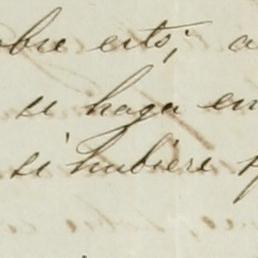 obre esto; a
se haga en
si hubiere